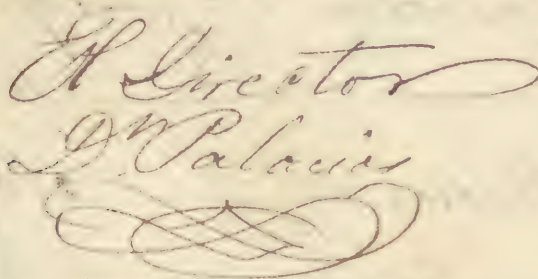 El Director
Dn Palacios